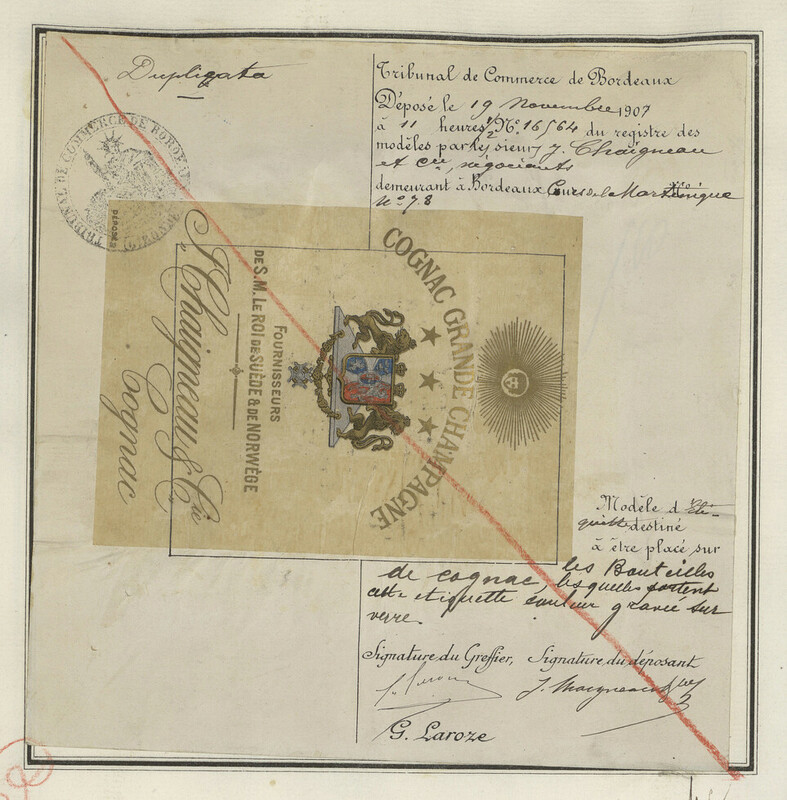 Dupliqata
Tribunal de Commerce de Bordeaux
Déposé le 19 Novembre 1907
à 11 heures ½ No. 16564 du registre des
modèles par les sieurs J. Chaigneau
et Cie, négociants
demeurant à Bordeaux Cours de la Martinique
No 78
TRIBUNAL DE COMMERCE DE BORDEAUX
(GIRONDE)
DÉPOSÉ
COGNAC GRANDE CHAMPAGNE
FOURNISSEURS
DE S. M. LE ROI DE SUÈDE & DE NORWÈGE
J. Chaigneau & Cie
Cognac
Modèle d'Eti-
quette destiné
à être placé sur
les Bouteilles
de cognac, lesquelles portent
cette etiquette couleur gravée sur
verre.
Signature du Greffier, Signature du déposant
J. Chaigneau & Cie
G. Laroze